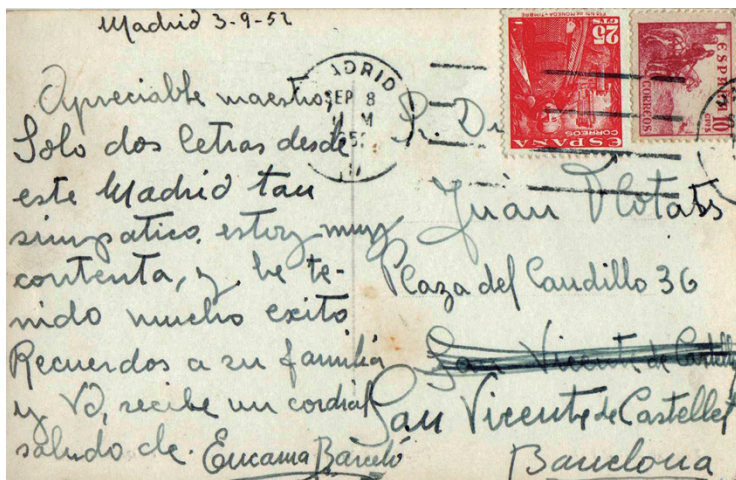 Madrid 3-9-52
Apreciable maestro;
Solo dos letras desde
este Madrid tan
simpatico. estoy muy
contenta, y he te-
nido mucho exito
Recuerdos a su familia
y Vd, recibe un cordial
saludo de. Encarna Barceló
MADRID
SEP 8
25
CTS
CORREOS
ESPAÑA
ESPAÑA
CORREOS
10
CTS
Sr. Dn
Juan Plotats
Plaza del Caudillo 36
San Vicente de Castellet
San Vicente de Castellet
Barcelona